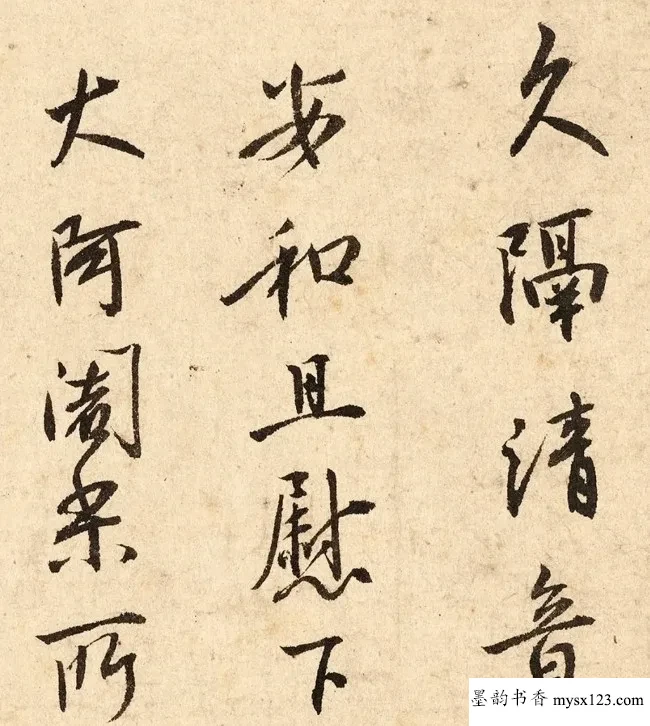 久隔清音
安和且慰下
大阿阇梨所
墨韵书香 mysx123.com